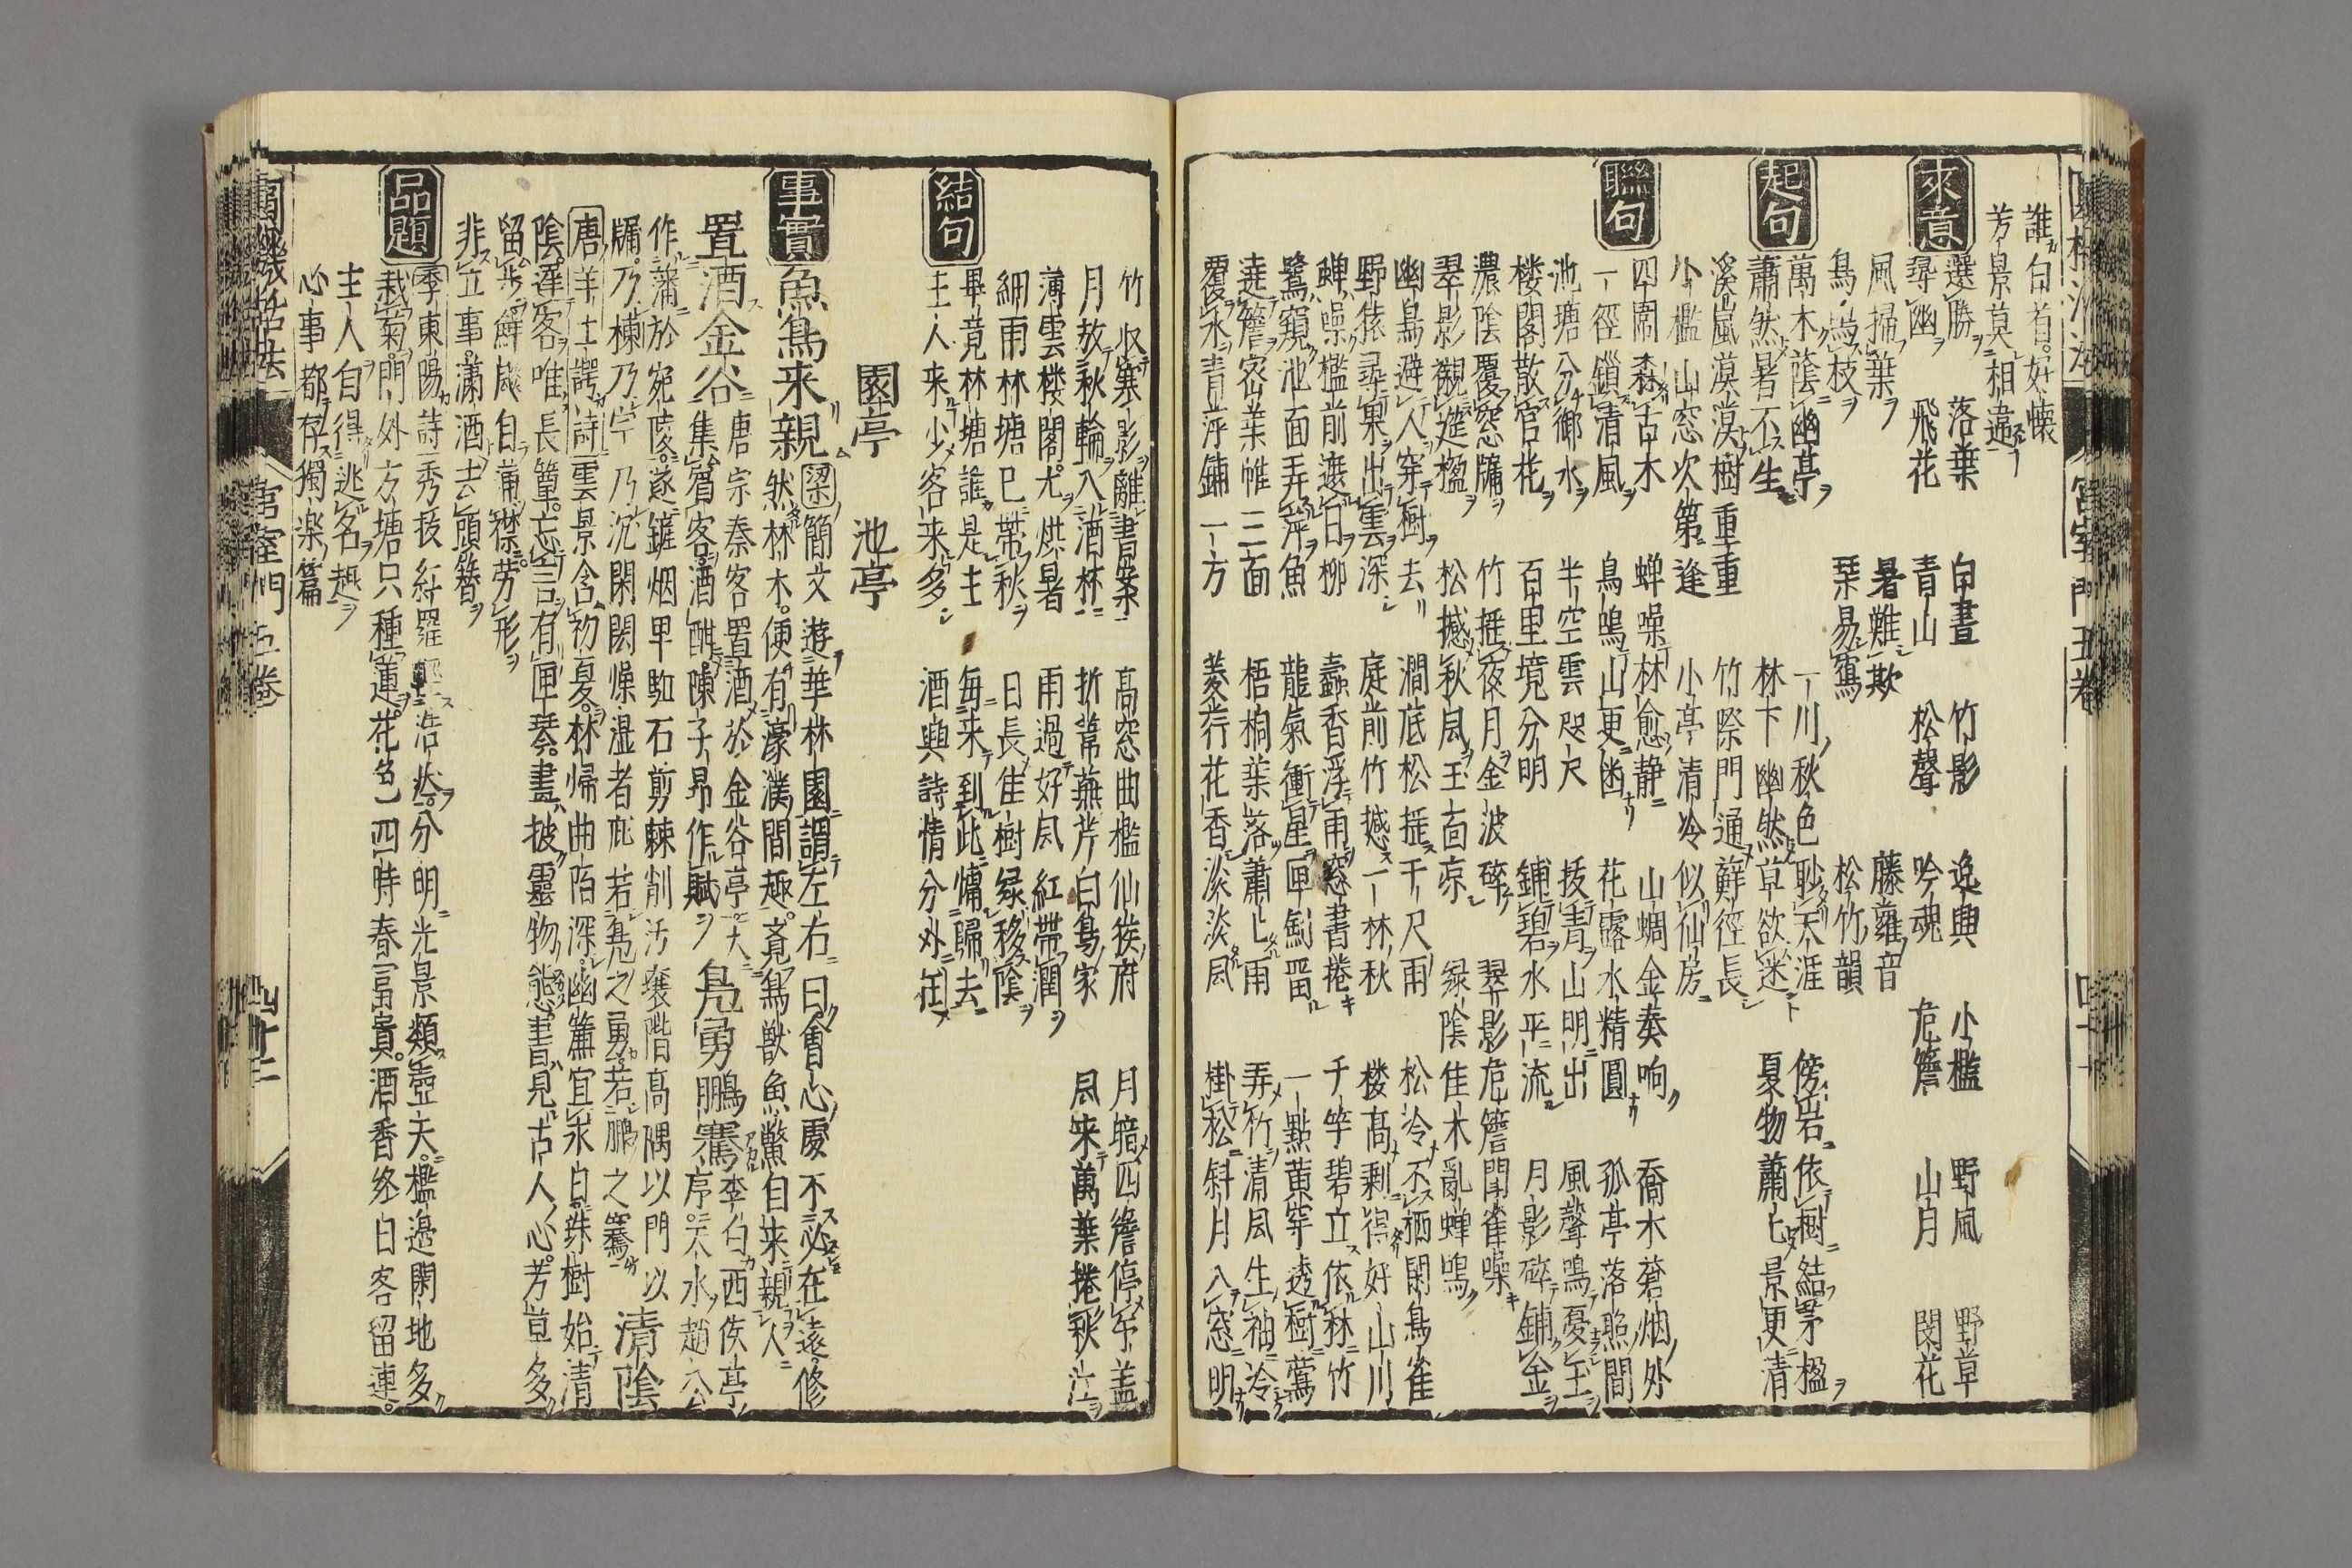 誰白首好懷
芳景莫相違
來意
選勝 落葉 白晝 竹影 逸興 小檻 野風 野草
尋幽 飛花 青山 松聲 吟魂 危簷 山月 閑花
風掃葉 暑難欺 藤蘿音
鳥鳴枝 琹易寫 松竹韻
起句
萬木蔭幽亭 一川秋色耿天涯 傍岩依樹結茅楹
蕭然暑不生 林下幽然草欲迷 夏物蕭匕景更清
溪嵐漠漠樹重重 竹際門通蘚徑長
小檻山窓次第逢 小亭清冷似仙房
聯句
四圍森古木 蟬噪林愈静 山蜩金奏响 喬木蒼烟外
一徑鎖清風 鳥鳴山更幽 花露水精圓 孤亭落照間
池塘分御水 半空雲咫尺 拔青山明出 風聲鳴憂玉
楼閣散官花 百里境分明 鋪碧水平流 月影碎鋪金
濃陰覆窓牖 竹摇夜月金波碎 翠影危簷閒雀噪
翠影襯莚楹 松撼秋風玉面凉 緑陰佳木亂蟬鳴
幽鳥避人穿樹去 澗底松摇千尺雨 松冷不栖閑鳥雀
野猿尋果出雲深 庭前竹撼一林秋 楼高剰得好山川
蟬噪檻前遮日柳 蠹香浮雨窓書捲 千竿碧立依林竹
鷺窺池面弄萍魚 龍氣衝星匣劍留 一點黄穿透樹鶯
遶簷密葉帷三面 梧桐葉落蕭匕雨 弄竹清風生袖冷
覆水青萍鋪一方 菱荇花香淡淡風 掛松斜月入窓明
竹収寒影離書案 高窓曲檻仙侯府 月暗四簷停午盖
月放秋輪入酒杯 折葦蕪芹白鳥家 風来萬葉捲秋江
薄雲楼閣尤烘暑 雨過好風紅帯潤
細雨林塘已帯秋 日長佳樹緑移陰
結句
畢竟林塘誰是主 毎来到此慵歸去
主人来少客来多 酒興詩情分外狂
園亭 池亭
事實
魚鳥来親 梁簡文遊華林園謂左右曰會心處不必在遠修
然林木便有濠濮間趣覺鳥獣魚鱉自来親人
置酒金谷 唐宗秦客置酒於金谷亭大
集賓客酒酣陳子昂作賦 鳧勇鵬騫 李白西侯亭
序天水趙公
作藩於宛陵遂鏟烟甲駈石剪棘削汚壌階高隅以門以
牖乃棟乃宇乃沉閑閎燥湿者庇若鳧之勇若鵬之騫 清陰
唐羊士諤詩雲景含初夏林帰曲陌深幽簾宜永日珠樹始清
陰遲客唯長簟忘言有匣琴畫披靈物態書見古人心芳草多
留歩鮮飈自蒲襟労形
非立事瀟洒去頭簪
品題
季東陽詩秀拔 浩 分明光景類壺天檻邉閑地多
栽菊門外方塘只種蓮花色四時春冨貴酒香终日客留連
主人自得逃名趣
心事都存獨楽篇
宮室門五卷
四十二